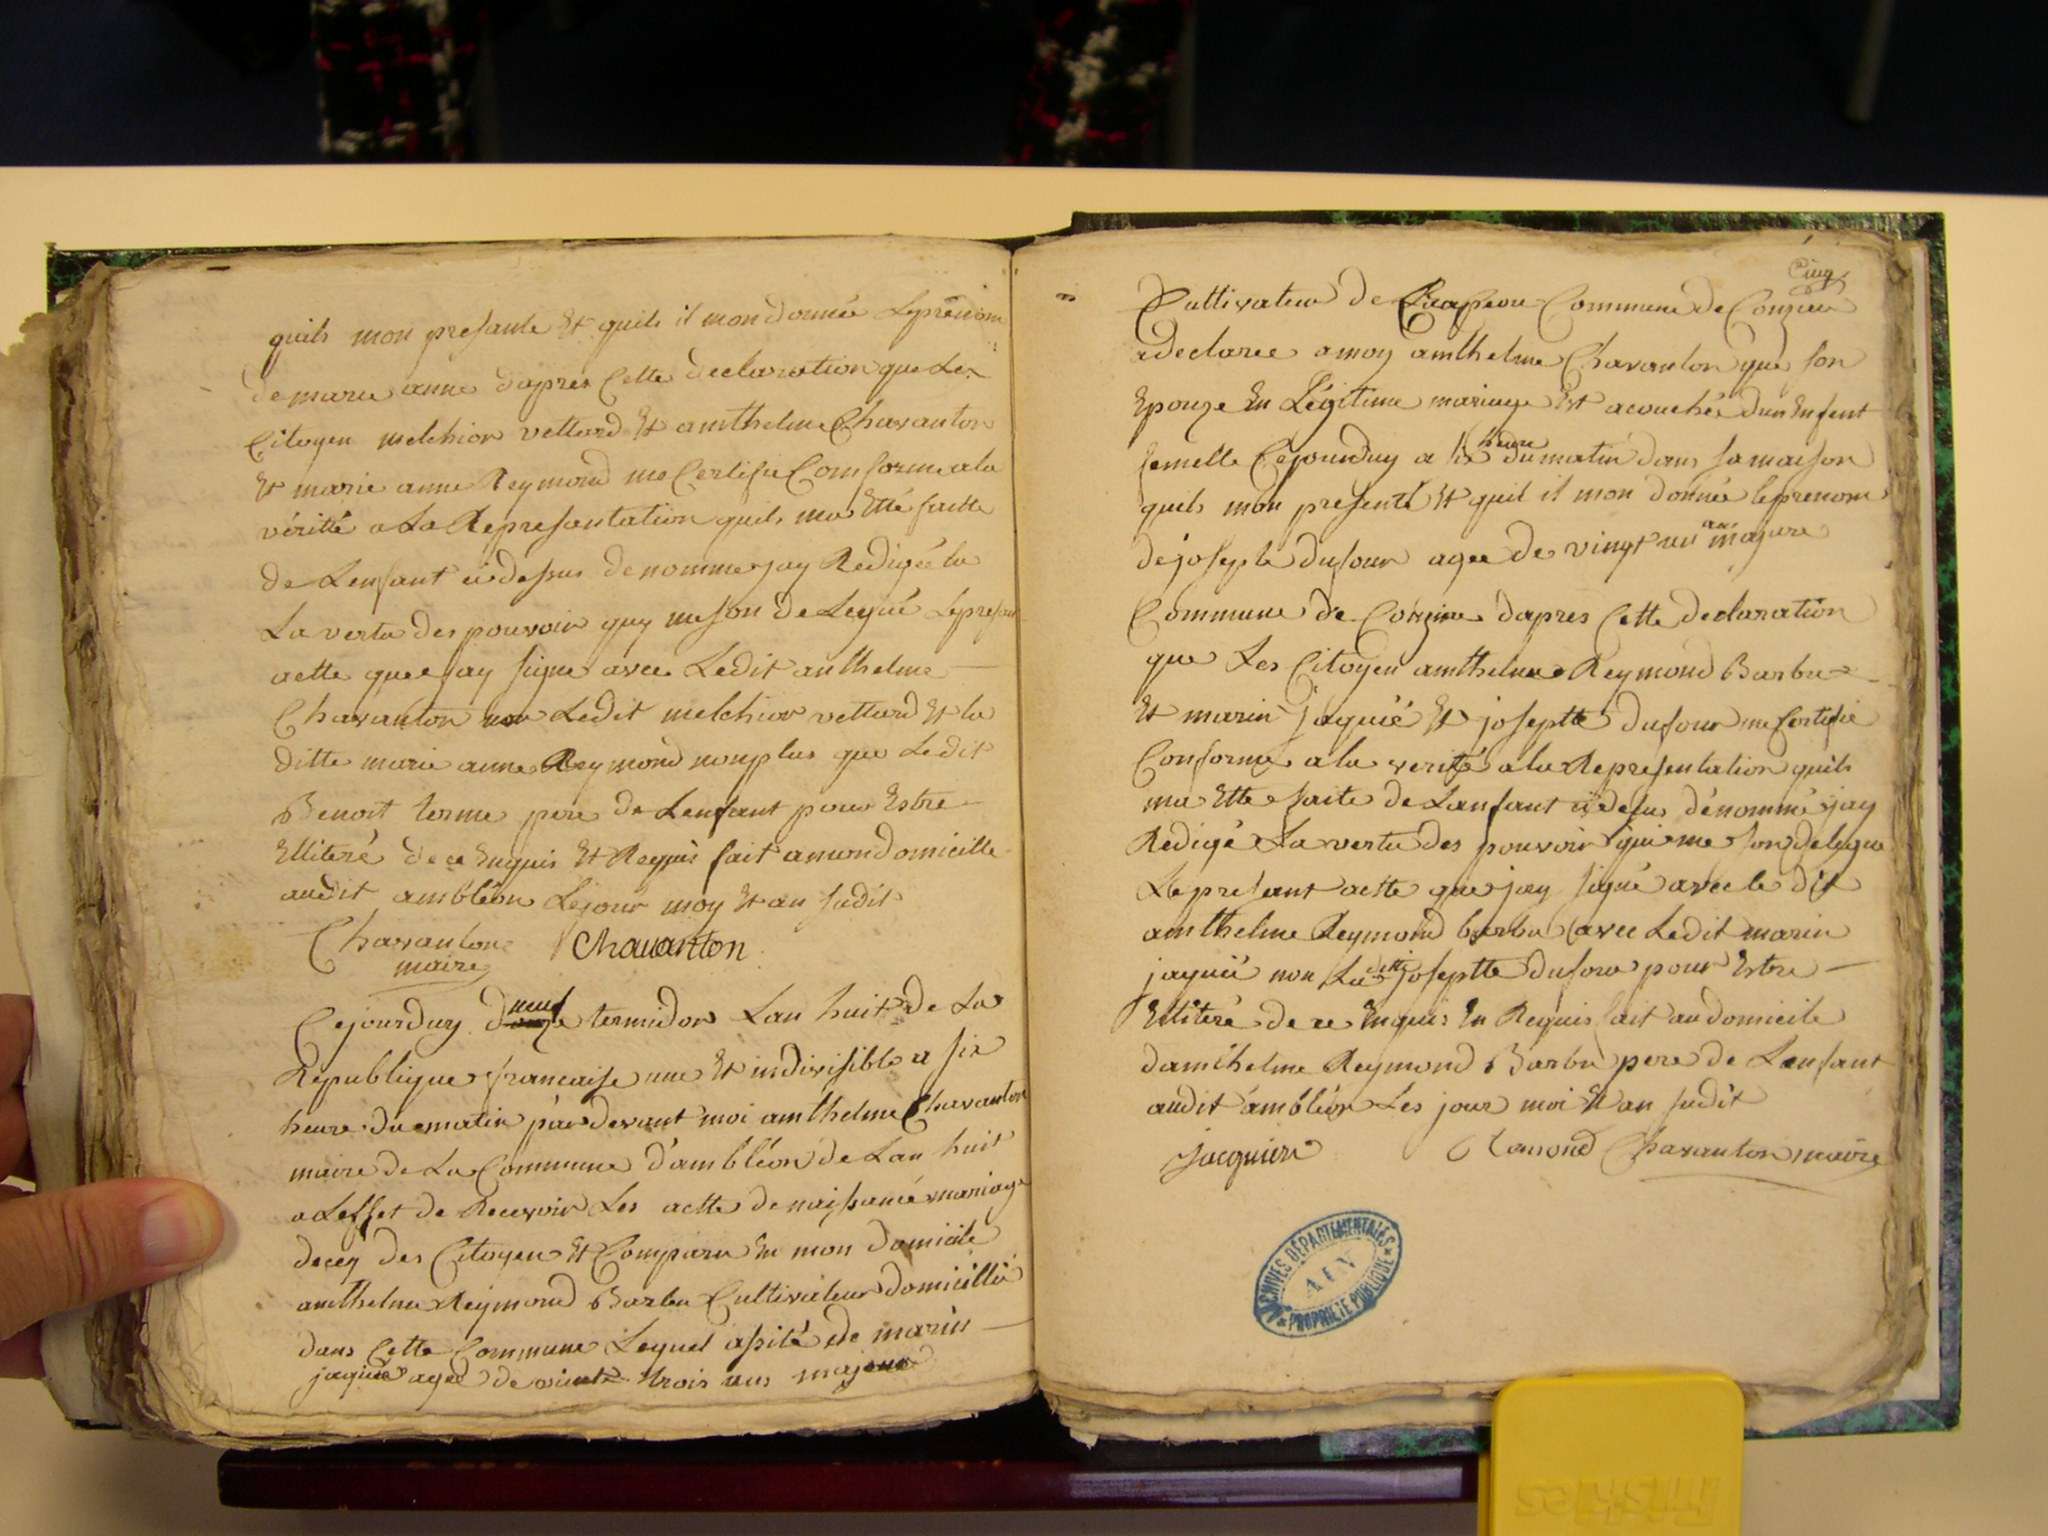 quils mon presante Et quils il mon donnée Leprenom
de marie anne dapres Cette declaration que Les
Citoyen melchior vettard Et amthelme Chavanton
Et marie anne Reymond me Certifie Comforme ala
vérité a La Representation quils ma Etté faitte
de Lenfant ci desus denomme jay Redigée la
La vertu des pouvoir quy me son deLegué Lepresant
actte que jay signe avec Ledit anthelme
Chavanton non Ledit melchior vettard Et la
ditte marie anne Reymond nonplus que Ledit
Benoit terme pere de Lenfant pour Estre
Elliteré de ce Enquis Et Requis fait amon domicille
audit ambléon Lejour moy Et an sudit
Chavanton Chavanton
maire
Cejourduy neuf termidor Lan huit de La
Republique francaise une Et indivisible a six
heure du matin par devant moi amthelme Chavanton
maire de La Commune d'ambléon de Lan huit
a Leffet de Recevoir Les actte de naissance mariage
decey des Citoyen Et Comparu En mon domicile
amthelme Reymond Barbu Cultivateur domicillié
dans Cette Commune Lequel asité de marin
jaquié agée de vimt trois ans majeur
Cinq
Cultivateur de Commune de Conzieu
adeclaree amoy amthelme Chavanton que son
Epouze En Légitime mariage Est acouchée dun Enfent
femelle Cejourduy a six heure dumatin dans samaison
quils mon presenté Et quil il mon donnée leprenom
de josepte dufour agee de vingt un an majure
Commune de Conzieu dapres Cette declaration
que Les Citoyen amthelme Reymond Barbu
Et marin jaquié Et joseptte dufour me Certifie
Conforme ala verité ala Representation quils
ma Ette faite de Lanfant ci desus dénommé jay
Redigé La vertu des pouvoir qui me son delegue
Lepresant actte que jay signé avec le dit
amthelme Reymond barbu avec Ledit marin
jaquié non La ditte joseptte dufour pour Estre
Elliteré de ce Enquis En Requis fait au domicile
damthelme Reymond Barbu pere de Lenfant
audit ambléon Les jour moi Et an sudit
jacquier Remond Chavanton maire
ARCHIVES DÉPARTEMENTALES
AIN
PROPRIÉTÉ PUBLIQUE